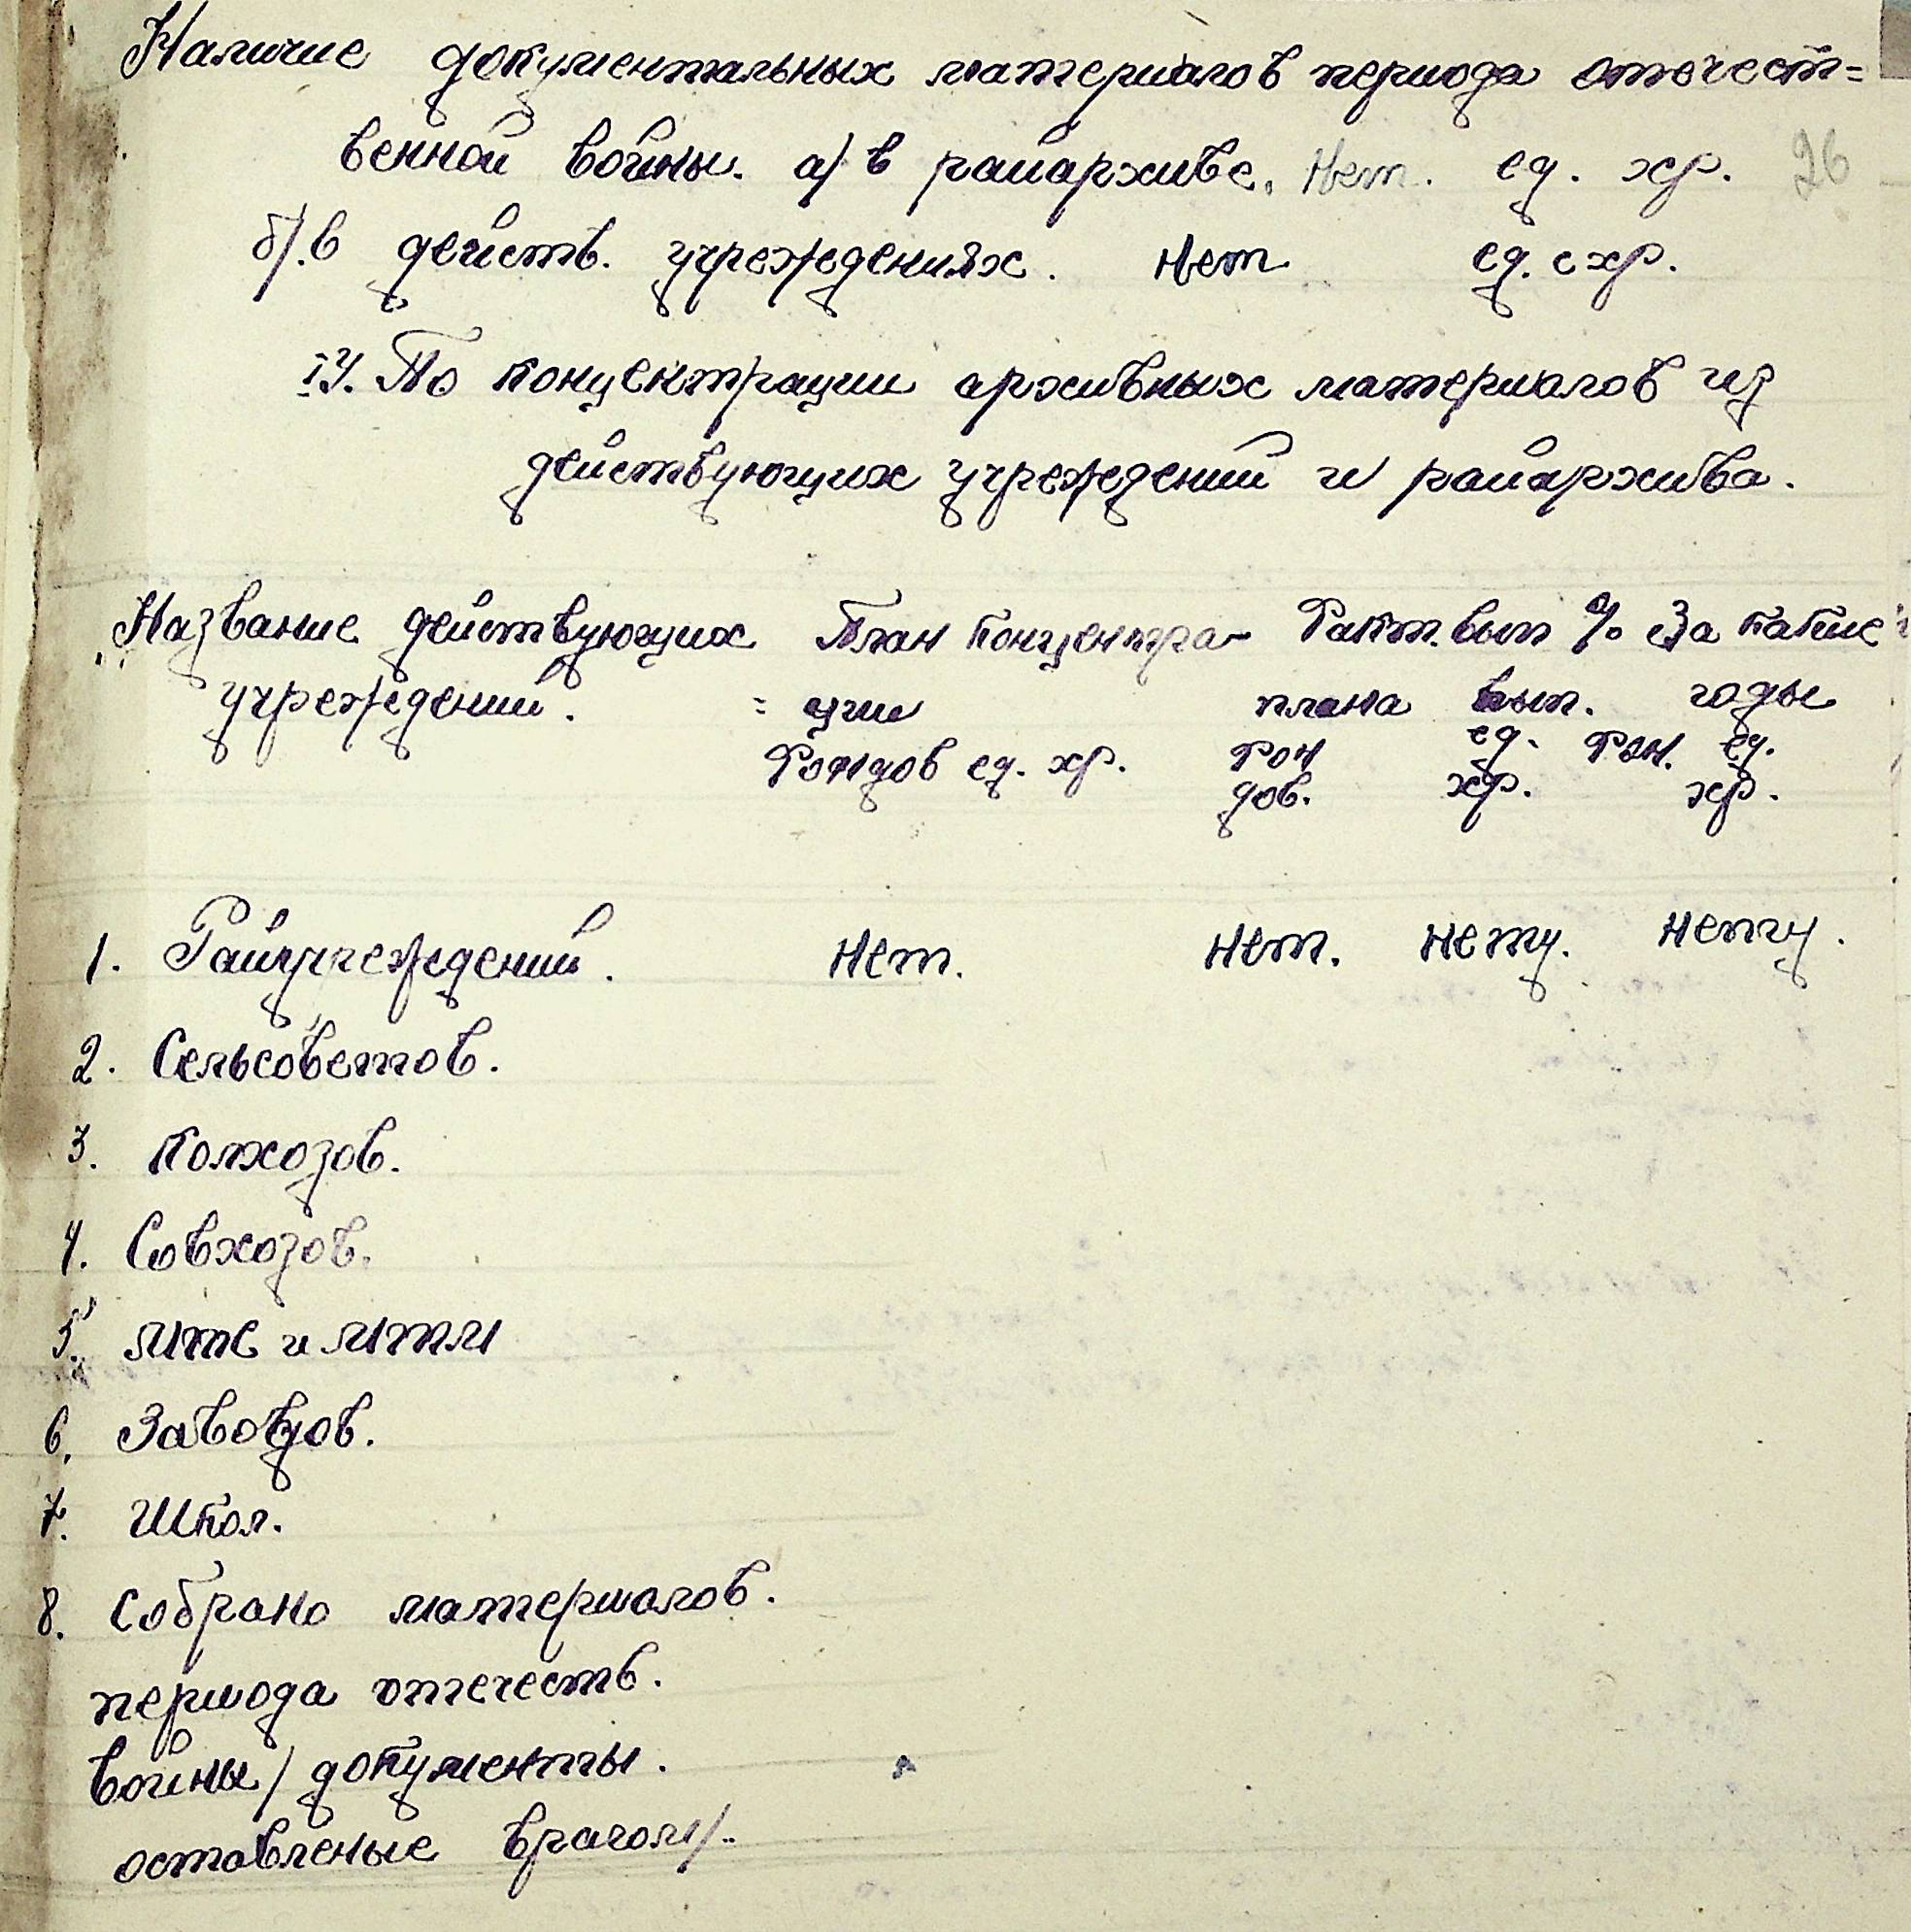 Наличие документальных материалов периода отечест=
венной войны. а/ в райархиве. Нет. ед. хр. 26
б/. в действ. учреждениях. Нет ед. схр.
IV. По концентрации архивных материалов из
действующих учреждений и райархива.
Название действующих План концентра- Факт. вып % За какие
учреждений. = ции плана вып. годы
Фондов ед. хр. Фон ед. Фон. ед.
дов. хр. хр.
1. Райучреждений. Нет. Нет. Нету. Нету.
2. Сельсоветов.
3. Колхозов.
4. Совхозов.
5. МТС и МТМ
6. Заводов.
7. Школ.
8. Собрано материалов.
периода отечеств.
войны / документы.
оставленые врагом/.